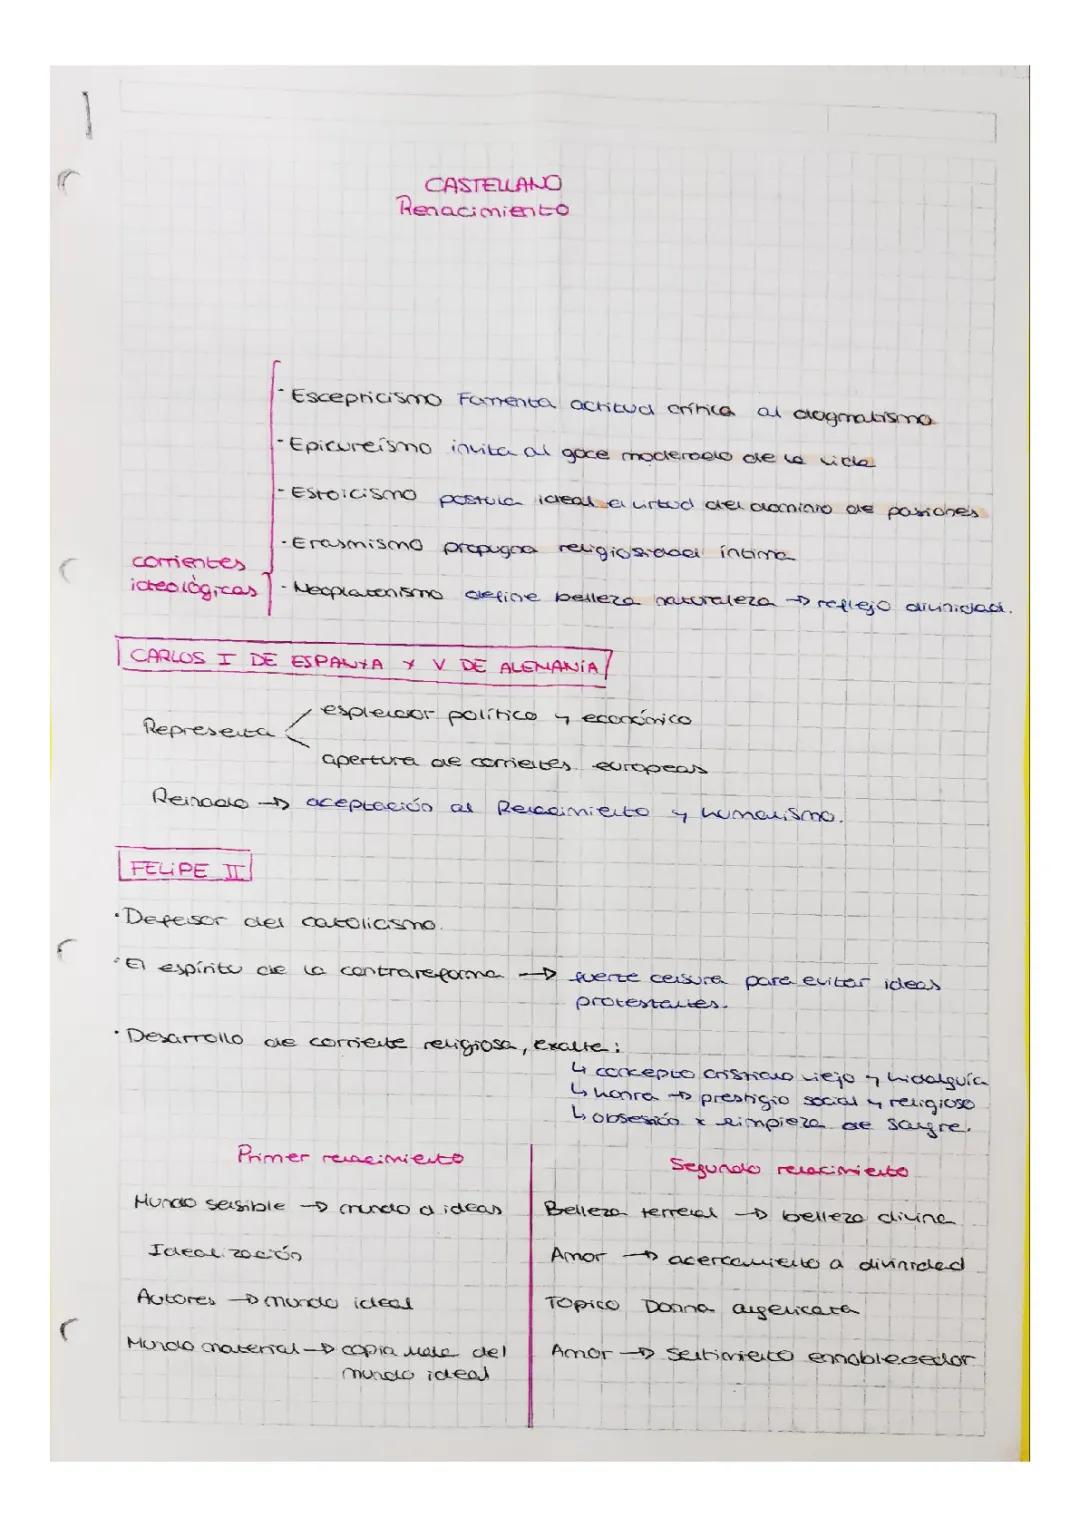 CASTELLANO
Renacimiento
· Escepticismo Fomenta actitud crítica al dogmatismo
· Epicureísmo invita al goce moderado de la vida
· Estoicismo postula ideal a virtud del dominio de pasiones
· Erasmismo propugna religiosidad íntima
corrientes
ideológicas
· Neoplatonismo define belleza naturaleza → reflejo divinidad.
CARLOS I DE ESPANYA Y V DE ALEMANIA
Representa
esplendor político y económico
apertura de corrientes europeas
Reinado → aceptación al Renacimiento y humanismo.
FELIPE II
· Defensor del catolicismo.
· El espíritu de la contrareforma → fuerte censura para evitar ideas
protestantes.
· Desarrollo de corriente religiosa, exalte:
↳ concepto cristiano viejo y hidalguía
↳ honra → prestigio social y religioso
↳ obsesión x limpieza de sangre.
Primer renacimiento
Mundo sensible → mundo d ideas
Idealización
Autores → mundo ideal
Mundo material → copia mala del
mundo ideal
Segundo renacimiento
Belleza terrenal → belleza divina
Amor → acercamiento a divinidad
Tópico Donna angelicata
Amor → Sentimiento ennoblecedor